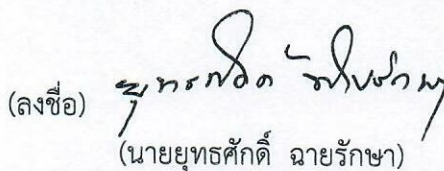 (ลงชื่อ) ยุทธศักดิ์ ฉายรักษา
(นายยุทธศักดิ์ ฉายรักษา)